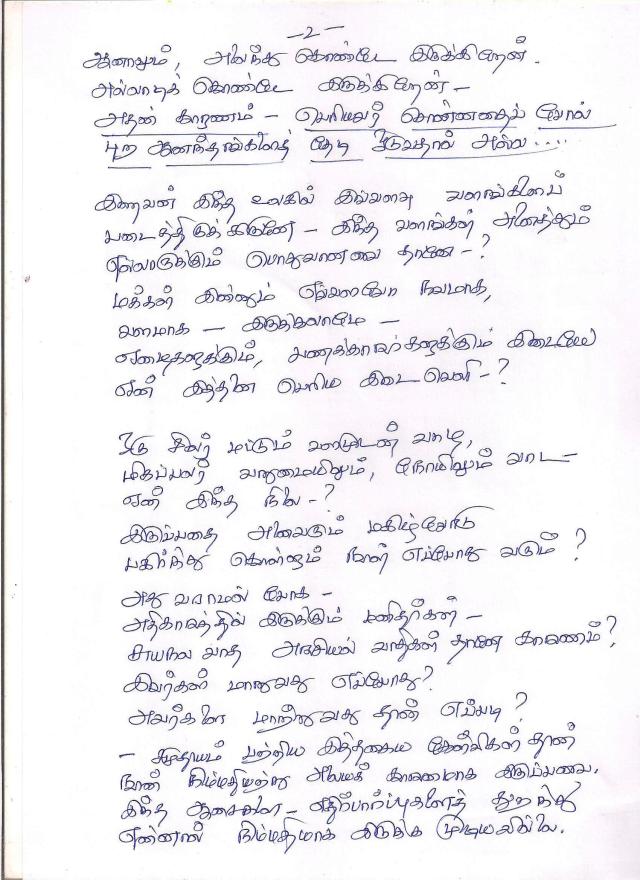 -2-
ஆனாலும், அலைந்து கொண்டே இருக்கிறேன்.
அல்லாடிக் கொண்டே இருக்கிறேன் -
அதன் காரணம் - பெரியவர் சொன்னதைப் போல்
புற ஆனந்தங்களைத் தேடி ஓடுவதால் அல்ல....
இறைவன் இந்த உலகில் இவ்வளவு வளங்களைப்
படைத்திருக்கிறானே - இந்த வளங்கள் அனைத்தும்
எல்லாருக்கும் பொதுவானவை தானே - ?
மக்கள் இன்னும் எவ்வளவோ நலமாக,
வளமாக - இருக்கலாமே -
ஏழைகளுக்கும், பணக்காரர்களுக்கும் இடையே
ஏன் இத்தனை பெரிய இடைவெளி - ?
ஒரு சிலர் மட்டும் வளமுடன் வாழ,
மிகப்பலர் வறுமையிலும், நோயிலும் வாட -
ஏன் இந்த நிலை - ?
இருப்பதை அனைவரும் மகிழ்வோடு
பகிர்ந்து கொள்ளும் நாள் எப்போது வரும் ?
அது வராமல் போக -
அதிகாரத்தில் இருக்கும் மனிதர்கள் -
சுயநல வாத அரசியல் வாதிகள் தானே காரணம் ?
இவர்கள் மாறுவது எப்போது ?
அவர்களை மாற்றுவது தான் எப்படி ?
- சமுதாயம் பற்றிய இத்தகைய கேள்விகள் தான்
நான் நிம்மதியற்று அலையக் காரணமாக இருப்பவை.
இந்த ஆசைகளை - எதிர்பார்ப்புகளைத் துறந்து
என்னால் நிம்மதியாக இருக்க முடியவில்லை.